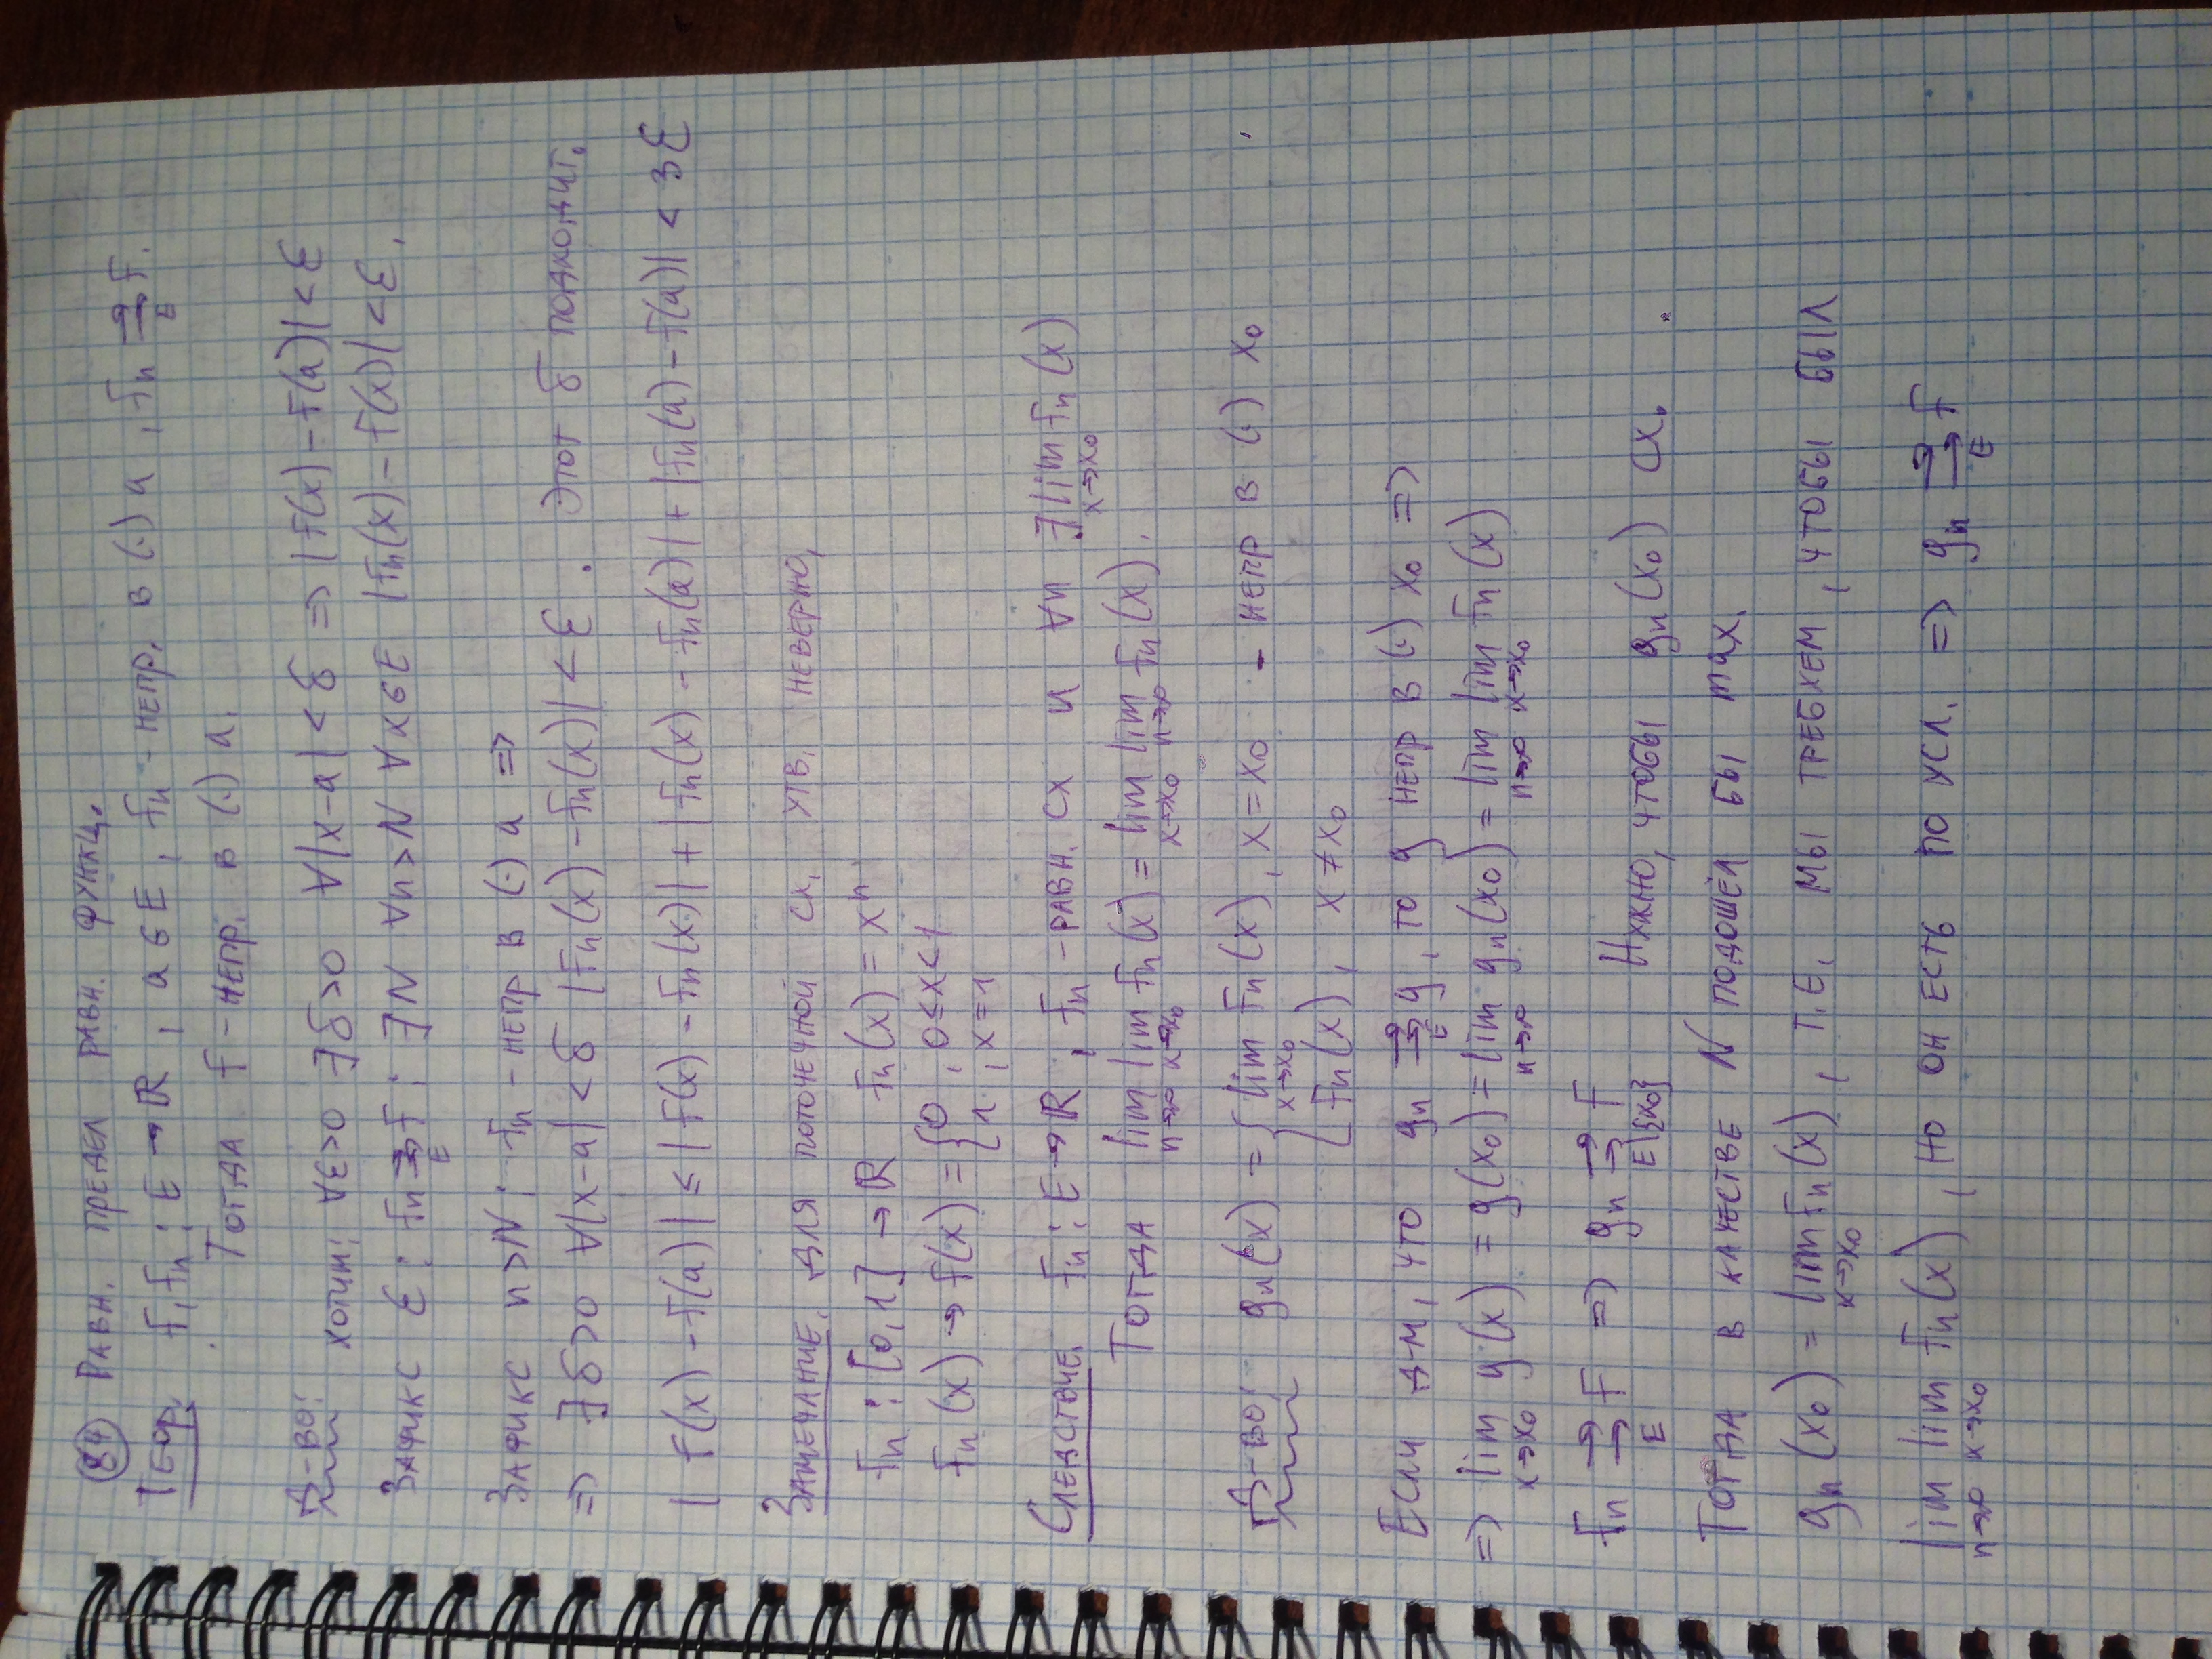 84 Равн. предел равн. функц.
Теор. f, fₙ : E → ℝ, a ∈ E, fₙ - непр. в (·) a, fₙ ⇉_E f.
Тогда f - непр. в (·) a.
Д-во:
хотим: ∀ε>0 ∃δ>0 ∀|x-a|<δ ⇒ |f(x) - f(a)| < ε
Зафикс ε : fₙ ⇉_E f : ∃N ∀n>N ∀x∈E |fₙ(x) - f(x)| < ε.
Зафикс n>N : fₙ - непр в (·) a ⇒
⇒ ∃δ>0 ∀|x-a|<δ |fₙ(x) - fₙ(x)| < ε. Этот δ подходит.
| f(x) - f(a)| ≤ |f(x) - fₙ(x)| + |fₙ(x) - fₙ(a)| + |fₙ(a) - f(a)| < 3ε
Замечание. для поточечной сх. утв. неверно,
fₙ : [0,1] → ℝ fₙ(x) = xⁿ
fₙ(x) → f(x) = { 0, 0≤x<1
1, x=1
Следствие. fₙ : E → ℝ, fₙ - равн. сх и ∀n ∃ lim_{x→x₀} fₙ(x)
Тогда lim_{n→∞} lim_{x→x₀} fₙ(x) = lim_{x→x₀} lim_{n→∞} fₙ(x).
Д-во: gₙ(x) = { lim_{x→x₀} fₙ(x), x = x₀ - непр в (·) x₀
fₙ(x), x ≠ x₀
Если д-м, что gₙ ⇉_E g, то g непр в (·) x₀ ⇒
⇒ lim_{x→x₀} g(x) = g(x₀) = lim_{n→∞} gₙ(x₀) = lim_{n→∞} lim_{x→x₀} fₙ(x)
fₙ ⇉_E f ⇒ gₙ ⇉_{E\{x₀}} f Нужно, чтобы gₙ(x₀) сх.
Тогда в качестве N подошёл бы max.
gₙ(x₀) = lim_{x→x₀} fₙ(x), т.е. мы требуем, чтобы был
lim_{n→∞} lim_{x→x₀} fₙ(x), но он есть по усл. ⇒ gₙ ⇉_E f